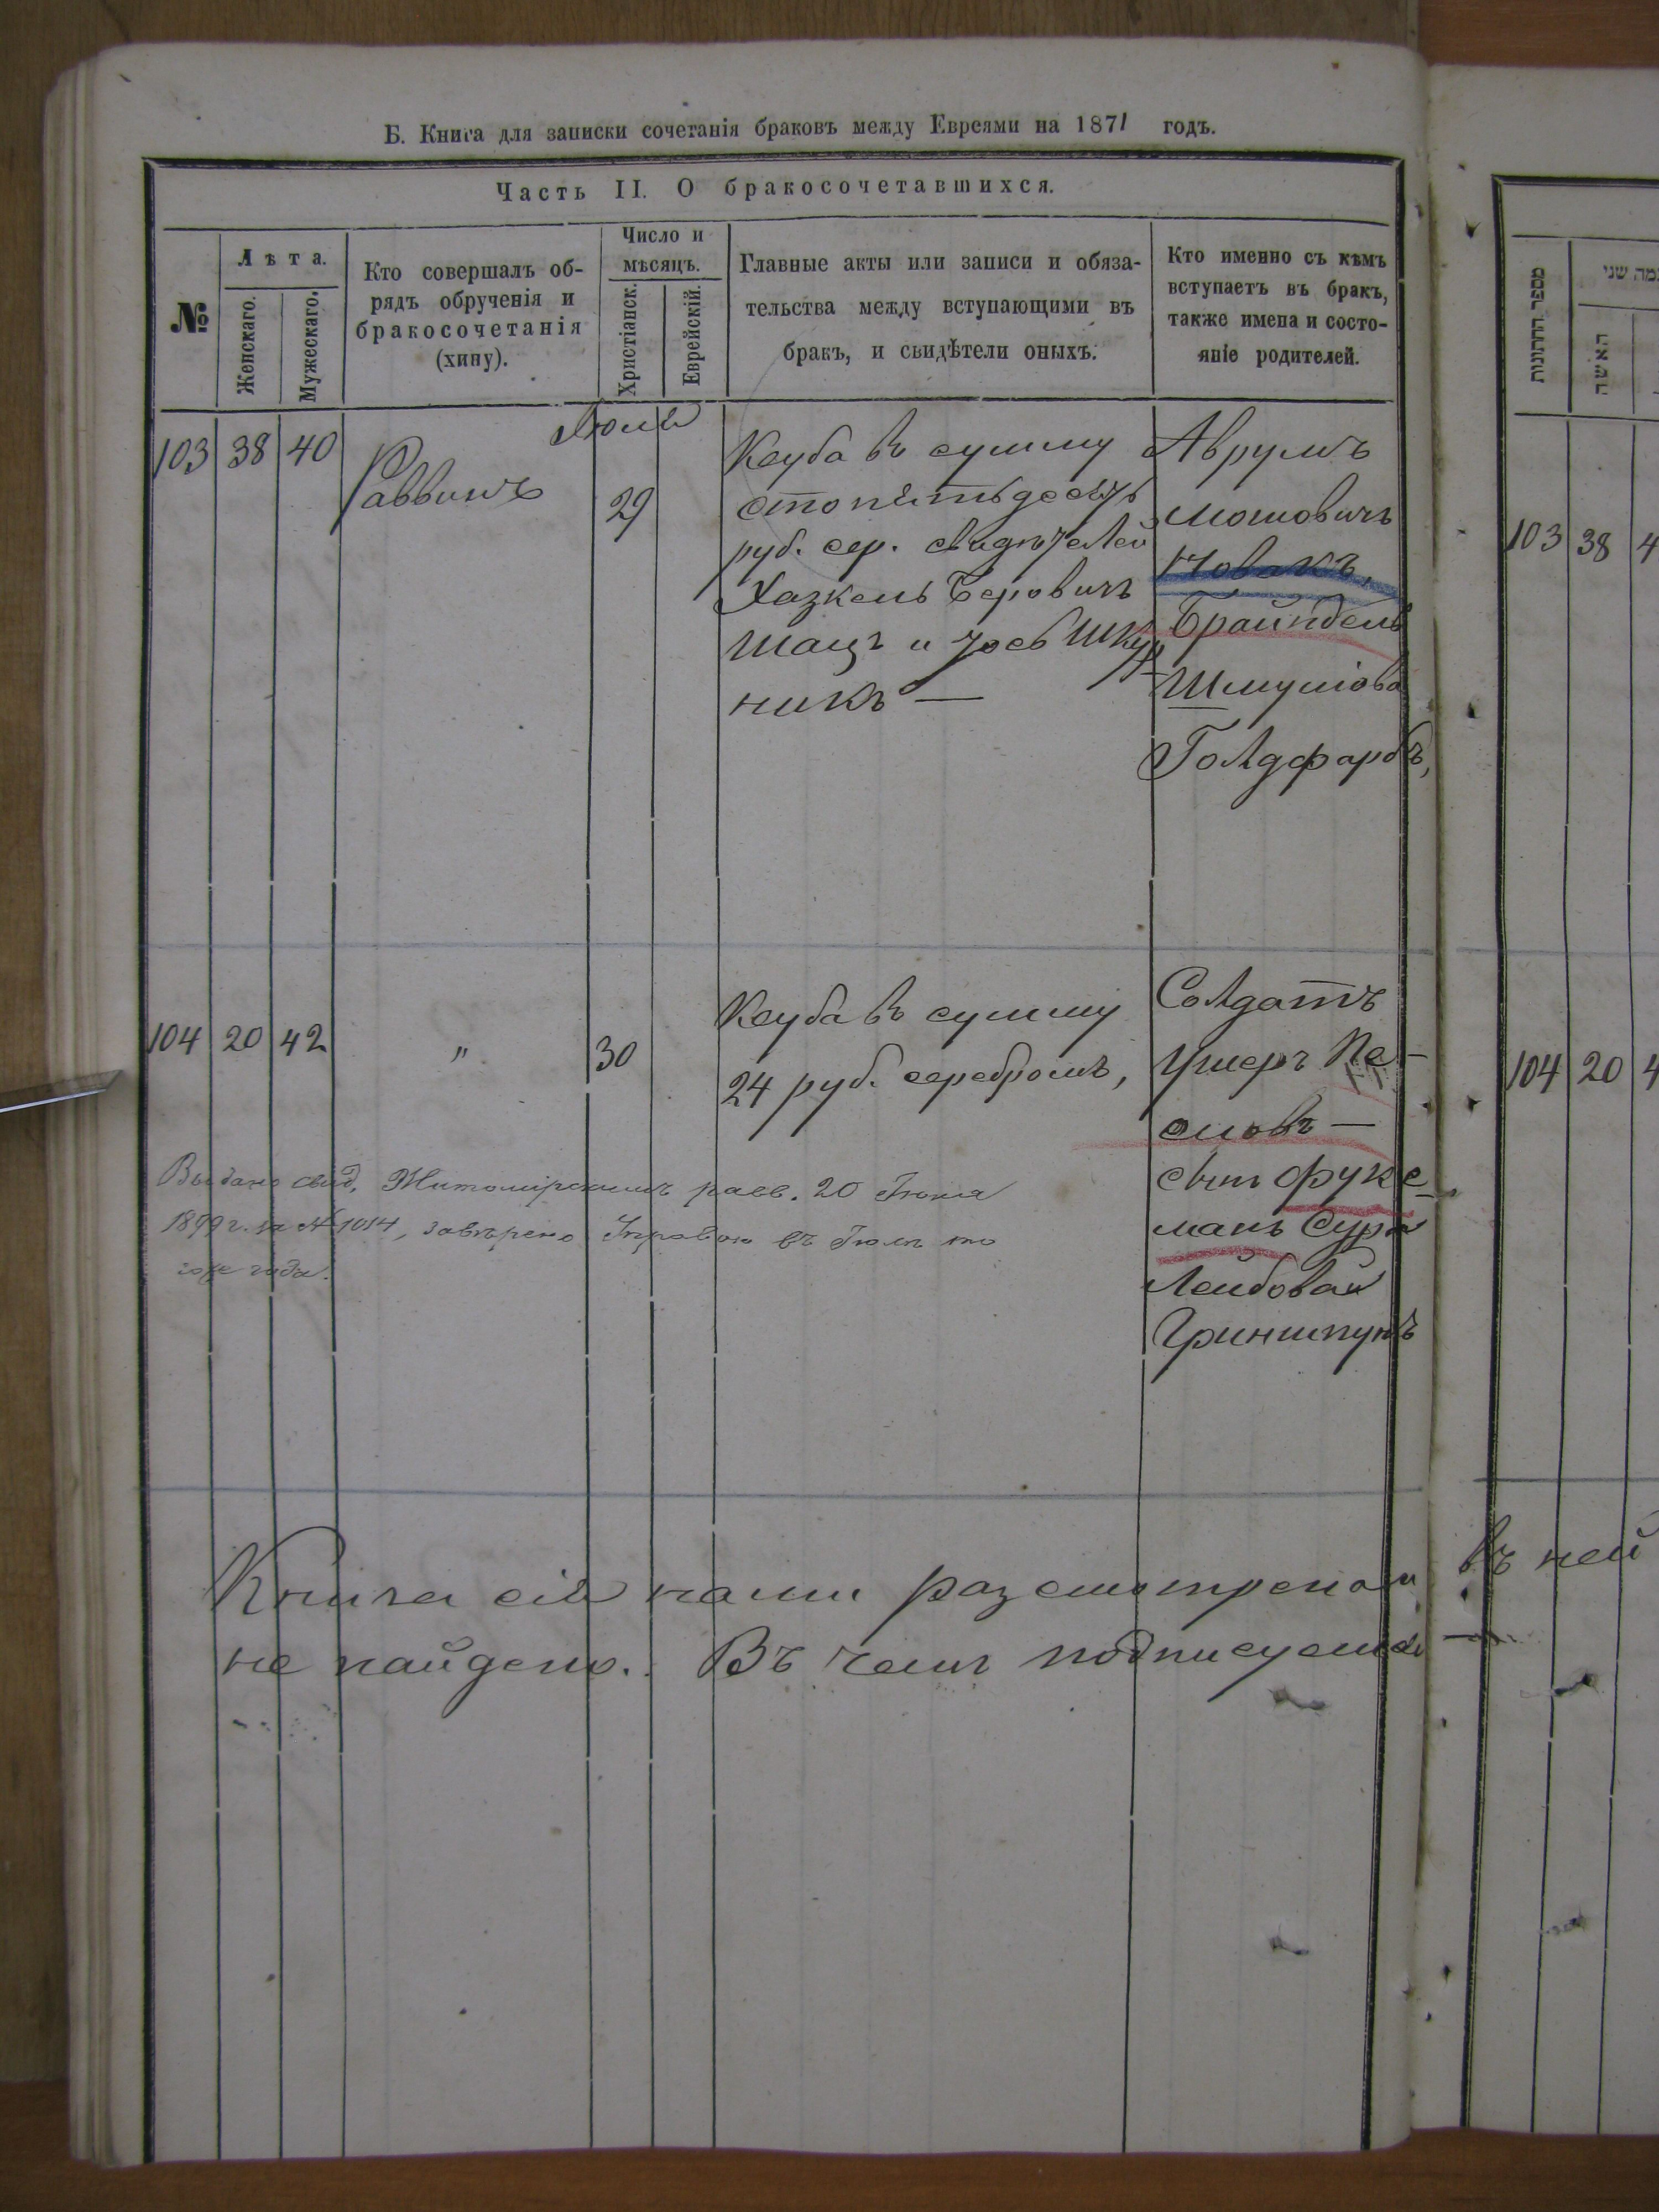 Б. Книга для записки сочетанія браковъ между Евреями на 1871 годъ.
Часть II. О бракосочетавшихся.
№
Лѣта.
Женскаго.
Мужескаго.
Кто совершалъ об-
рядъ обрученія и
бракосочетанія
(хипу).
Число и
мѣсяцъ.
Христіанск.
Еврейскій.
Главные акты или записи и обяза-
тельства между вступающими въ
бракъ, и свидѣтели оныхъ.
Кто именно съ кѣмъ
вступаетъ въ бракъ,
также имена и состо-
яніе родителей.
מספר החתונות
האשה
103 38 40
Раввинъ
Іюля
29
Ксуба въ сумму
стопятьдесятъ
руб. сер. свидѣтелей
Хазкель Беровичъ
Шацъ и Іось Шкур
никъ —
Аврумъ
Мошовичъ
Новакъ,
Брайндель
Шмуліова
Голдфарбъ,
104 20 42
"
30
Ксуба въ сумму
24 руб. серебромъ,
Солдатъ
Ушеръ Пе-
—
сынъ Фукс-
манъ Сура
Лейбовая
Гриншпунъ
Выдано свид. Житомірскимъ равв. 20 Іюня
1899 г. за № 1014, завѣрено Управою въ Іюлѣ то
го же года.
Книга сія нами разсмотрена и
не найдено. Въ чемъ подписуемся
103 38 4
104 20 4
въ ней